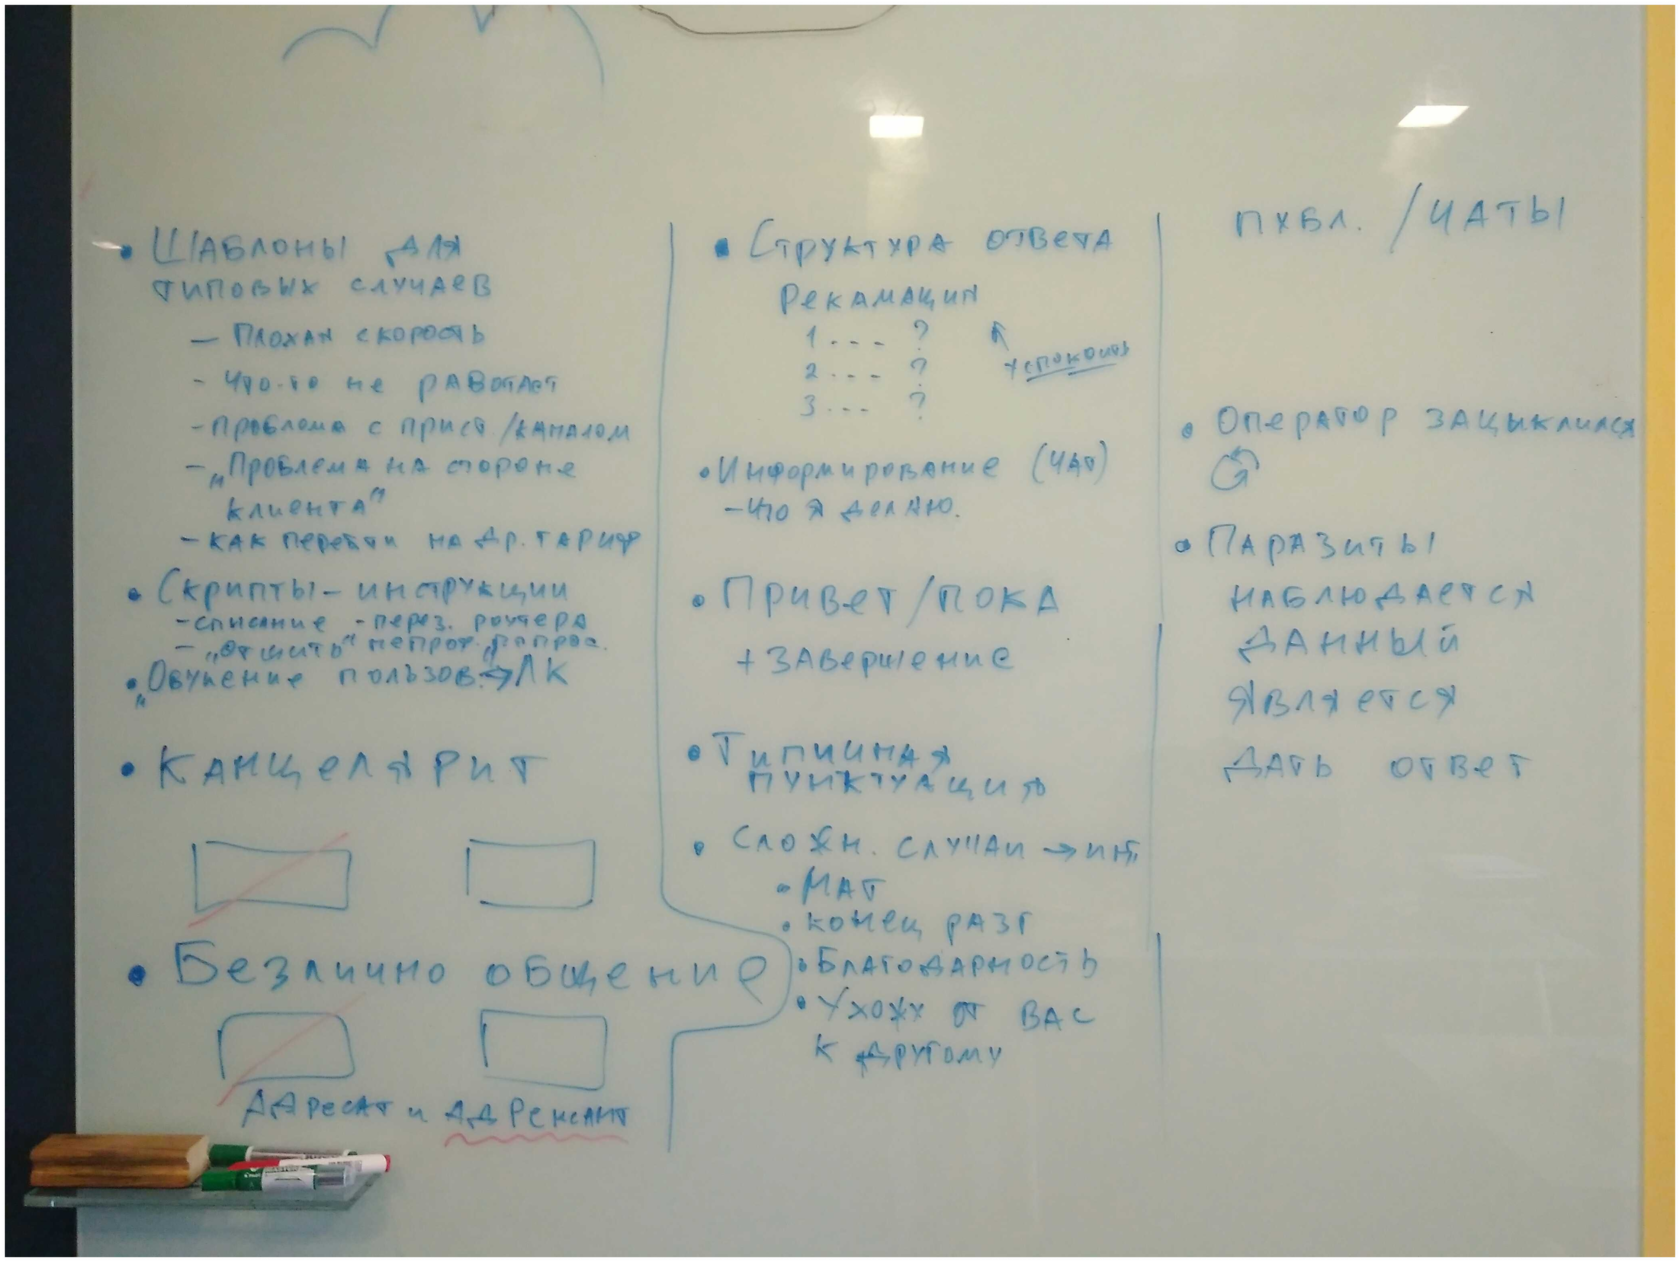 • Шаблоны для
типовых случаев
— Плохая скорость
- Что-то не работает
- Проблема с прист./каналом
- „Проблема на стороне
клиента"
- как перейти на др. тариф
• Скрипты - инструкции
- списание - перез. роутера
- „отшить" непрот.
• „Обучение пользов. → ЛК
• Канцелярит
• Безлично общение
Адресат и адренсант
• Структура ответа
Рекамации
1 .... ?
2 .... ?
3 ... ?
успокоить
• Информирование (чат)
- Что я делаю.
• Привет/пока
+ завершение
• Типичная
пунктуация
• Сложн. случаи →
• мат
• конец разг
• Благодарность
• Ухожу от вас
к другому
публ. / чаты
• Оператор зацыклился
• Паразиты
наблюдается
данный
является
дать ответ